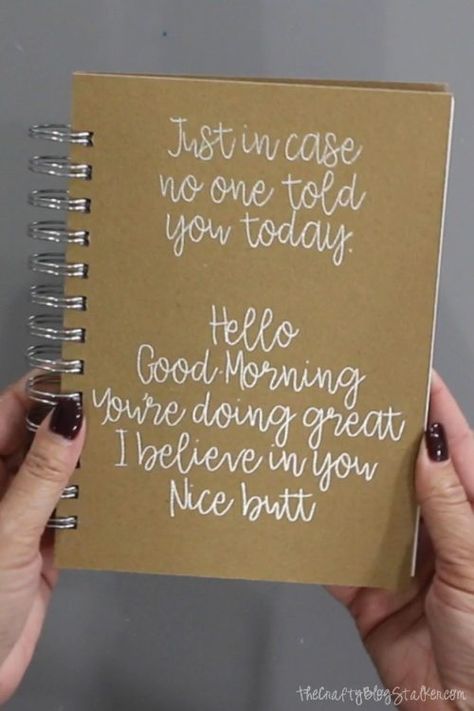 Just in case
no one told
you today.
Hello
Good Morning
You're doing great
I believe in you
Nice butt
theCraftyBlogStalker.com